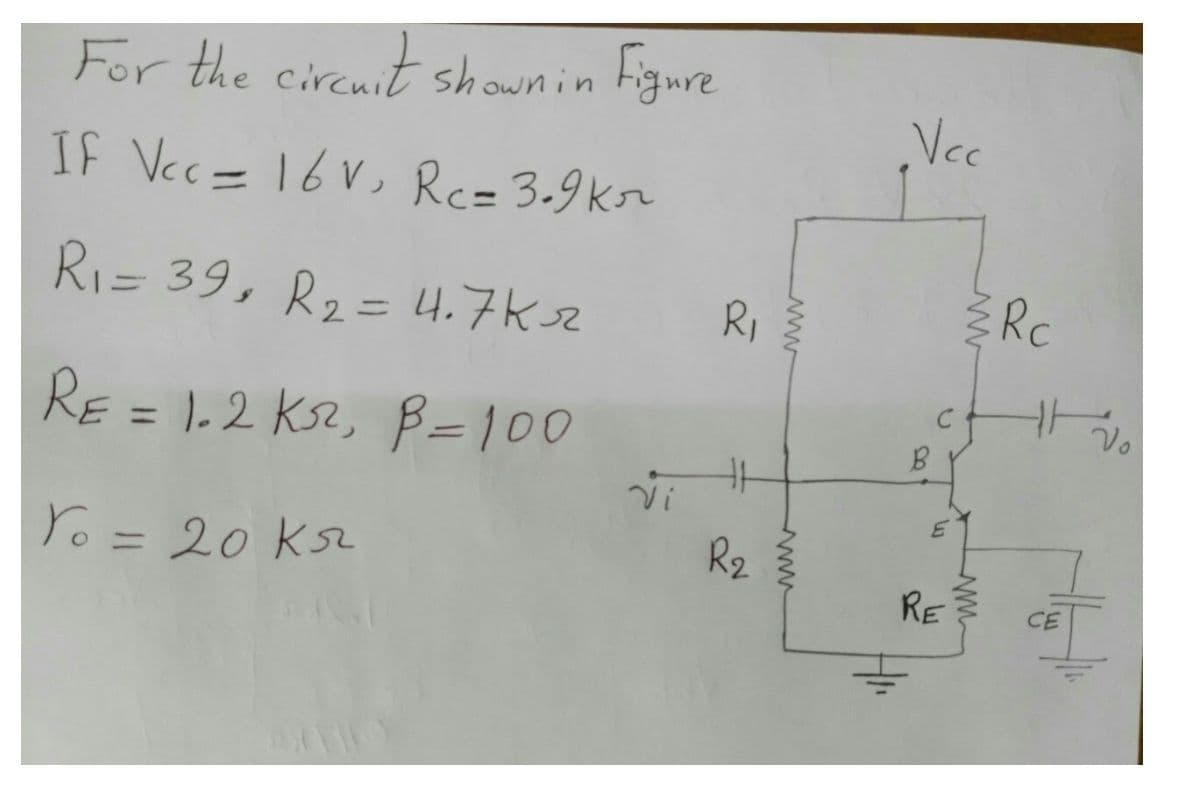 For the circuit shown in Figure
If Vcc = 16 V, Rc = 3.9 KΩ
R1 = 39, R2 = 4.7 KΩ
RE = 1.2 KΩ, β = 100
ro = 20 KΩ
Vcc
R1
Rc
C
vo
B
vi
E
R2
RE
CE